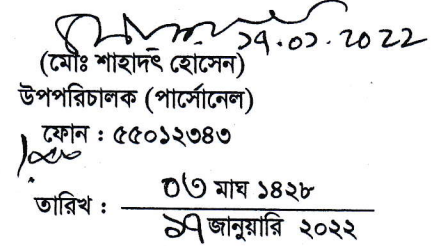 ১৭.০১.2022
(মোঃ শাহাদৎ হোসেন)
উপপরিচালক (পার্সোনেল)
ফোন : ৫৫০১২৩৪৩
তারিখ : ০৩ মাঘ ১৪২৮
১৭ জানুয়ারি ২০২২